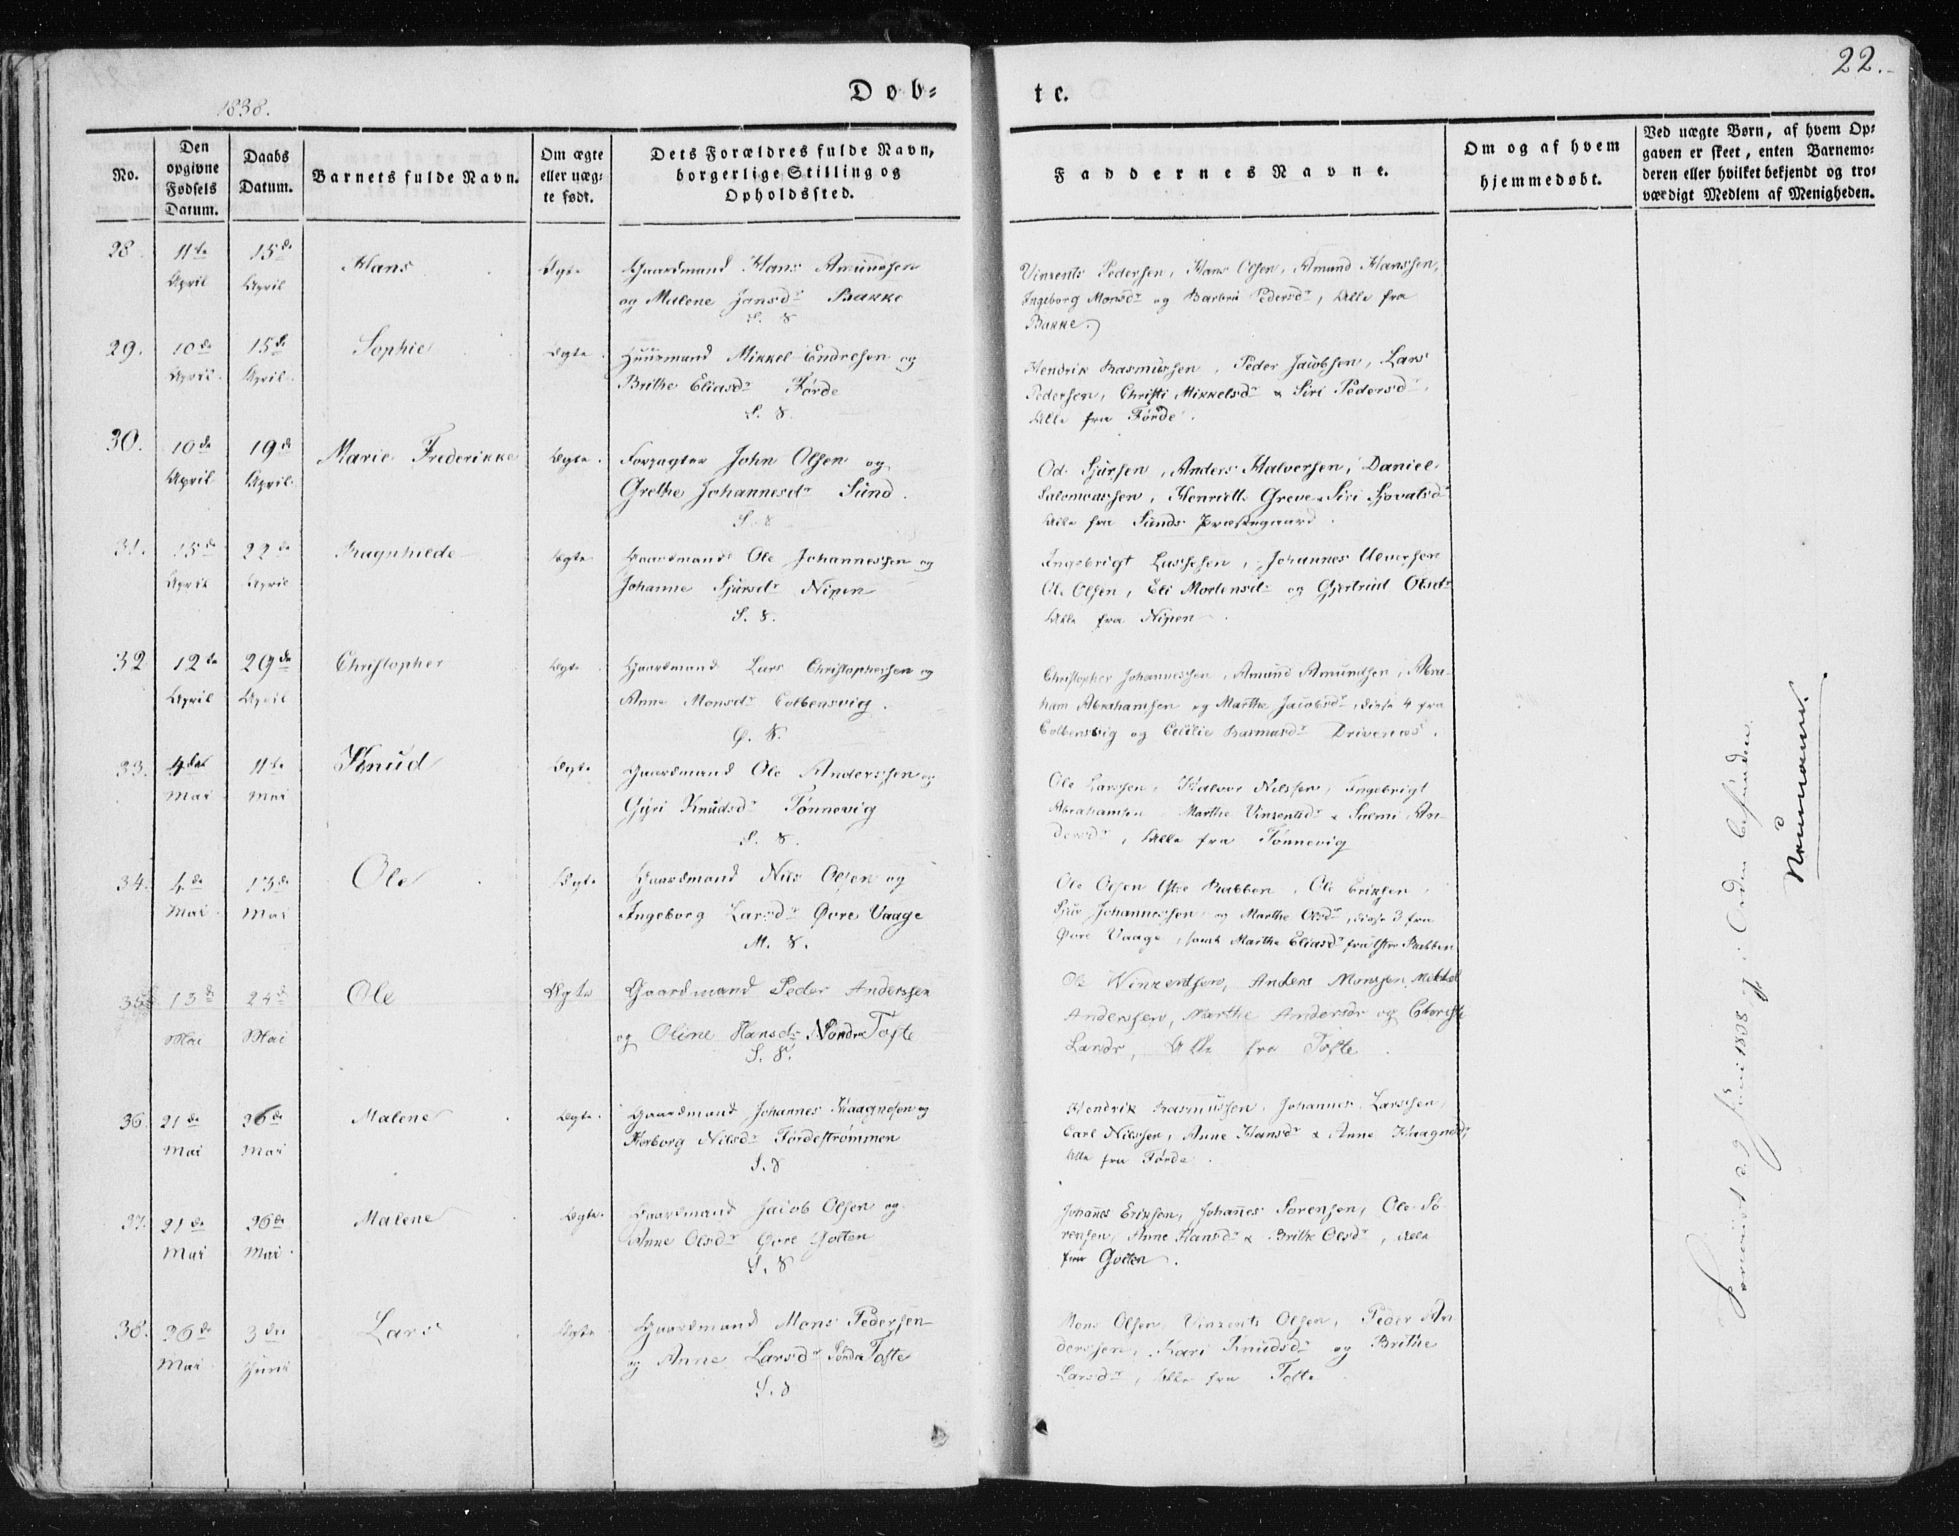 22.
1838.
Dob=
te.
No.
Den opgivne Fødsels Datum.
Daabs Datum.
Barnets fulde Navn.
Om ægte eller uæg-te født.
Dets Forældres fulde Navn, borgerlige Stilling og Opholdssted.
Faddernes Navne.
Om og af hvem hjemmedøbt.
Ved uægte Børn, af hvem Op-gaven er skeet, enten Barnemo-deren eller hvilket bekjendt og tro-værdigt Medlem af Menigheden.
28. 11te April 15de April Hans Ægte
Gaardmand Hans Amundsen
og Malene Jansdr Bakke
S. S
Vinzents Pedersen, Hans Olsen, Amund Hanssen,
Ingeborg Monsdr og Barbra Pedersdr, Alle fra
Bakke.
29. 10de April 15de April Sophie Ægte
Huusmand Mikkel Endresen og
Brithe Eliasdr Førde
S. S.
Hendrik Rasmussen, Peder Jacobsen, Lars
Pedersen, Christi Mikkelsdr & Siri Pedersdr,
Alle fra Førde.
30. 10de April 19de April Marie Frederikke Ægte
Forpagter John Olsen og
Grethe Johannesdr Sund.
S. S
Od Sjursen, Anders Halversen, Daniel
Salomonsen, Henriette Greve & Siri Sjovatsdr
Alle fra Sunds Præstegaard.
31. 15de April 22de April Ragnhilde Ægte
Gaardmand Ole Johannessen og
Johanne Sjursdr Nipen
S. S.
Ingebrigt Lassesen, Johannes Alversen
Ole Olsen, Eli Mortensdr og Gjertrud Olsdr
Alle fra Nipen.
32 12te April 29de April Christopher Ægte
Gaardmand Lars Christophersen og
Anne Monsdr Golbensvig.
Ø. S.
Christopher Johannessen, Amund Amundsen, Abra-
ham Abrahamsen og Marthe Jacobsdr, disse 4 fra
Golbensvig og Cecilie Rasmusdr Drivenæs.
33. 4de Mai 11te Mai Knud Ægte
Gaardmand Ole Anderssen og
Gyri Knudsdr Tønnevig
S. S.
Ole Larssen, Halvor Nilssen, Ingebrigt
Abrahamsen, Marthe Vinzentsdr & Sjemi An-
dersdr, Alle fra Tønnevig
34. 4de Mai 13de Mai Ole Ægte
Gaardmand Nils Olsen og
Ingeborg Larsdr Øvre Vaage
M. S.
Ole Olsen Ytre Rabben, Ole Eriksen,
Sjur Johannessen og Marthe Olsdr, disse 3 fra
Øvre Vaage, samt Marthe Eliasdr fra Ytre Rabben
35. 13de Mai 24de Mai Ole Ægte
Gaardmand Peder Anderssen
og Oline Hansdr Nordre Tofte
S. S.
Ole Winzentsen, Anders Monssen, Mikkel
Anderssen, Marthe Andersdr og Christi
Larsdr, Alle fra Tofte.
36. 21de Mai 26de Mai Malene Ægte
Gaardmand Johannes Haagnesen og
Herborg Nilsdr Førdestrømmen
S. S
Hendrik Rasmussen, Johannes Larssen,
Carl Nilssen, Anne Hansdr & Anne Haagnesdr,
Alle fra Førde.
37. 21de Mai 26de Mai Malene Ægte
Gaardmand Jacob Olsen og
Anne Olsdr Øvre Golten
S. S
Johannes Eriksen, Johannes Sørensen, Ole Sø-
rensen, Anne Hansdr & Brithe Olsdr, Alle
fra Golten.
38. 26de Mai 3die Juni Lars Ægte
Gaardmand Mons Pedersen
og Anne Larsdr Søndre Tofte
S. S
Mons Olsen, Vinzents Olsen, Peder An-
derssen, Kari Knudsdr og Brithe
Larsdr, Alle fra Tofte
d. 9 Juni 1838 i Orden befunden.
Neumann.